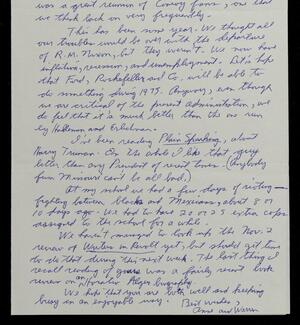 was a great reunion of Conroy fans, one that
we think back on very frequently.
This has been some year. We thought all
our troubles would be over with the departure
of R. M. Nixon, but they weren't. We now have
inflation, recession, and unemployment. Let's hope
that Ford, Rockefeller and Co. will be able to
do something during 1975. Anyway, even though
we are critical of the present administration, we
do feel that it's much better than the one run
by Haldeman and Erlichman.
I've been reading Plain Speaking, about
Harry Truman. On the whole I like that guy
better than any President of recent times. (Anybody
from Missouri can't be all bad.)
At my school we had a few days of rioting -
fighting between blacks and Mexicans, about 8 or
10 days ago. We had to have 20 or 25 extra cops
assigned to the school for a while.
We haven't managed to look up the Nov. 2
review of Writers in Revolt yet, but should get time
to do that during this next week. The last thing I
recall reading of yours was a fairly recent book
review on an Horatio Alger biography.
We hope that you are both well and keeping
busy in an enjoyable way.
Best wishes,
Anne and Warren